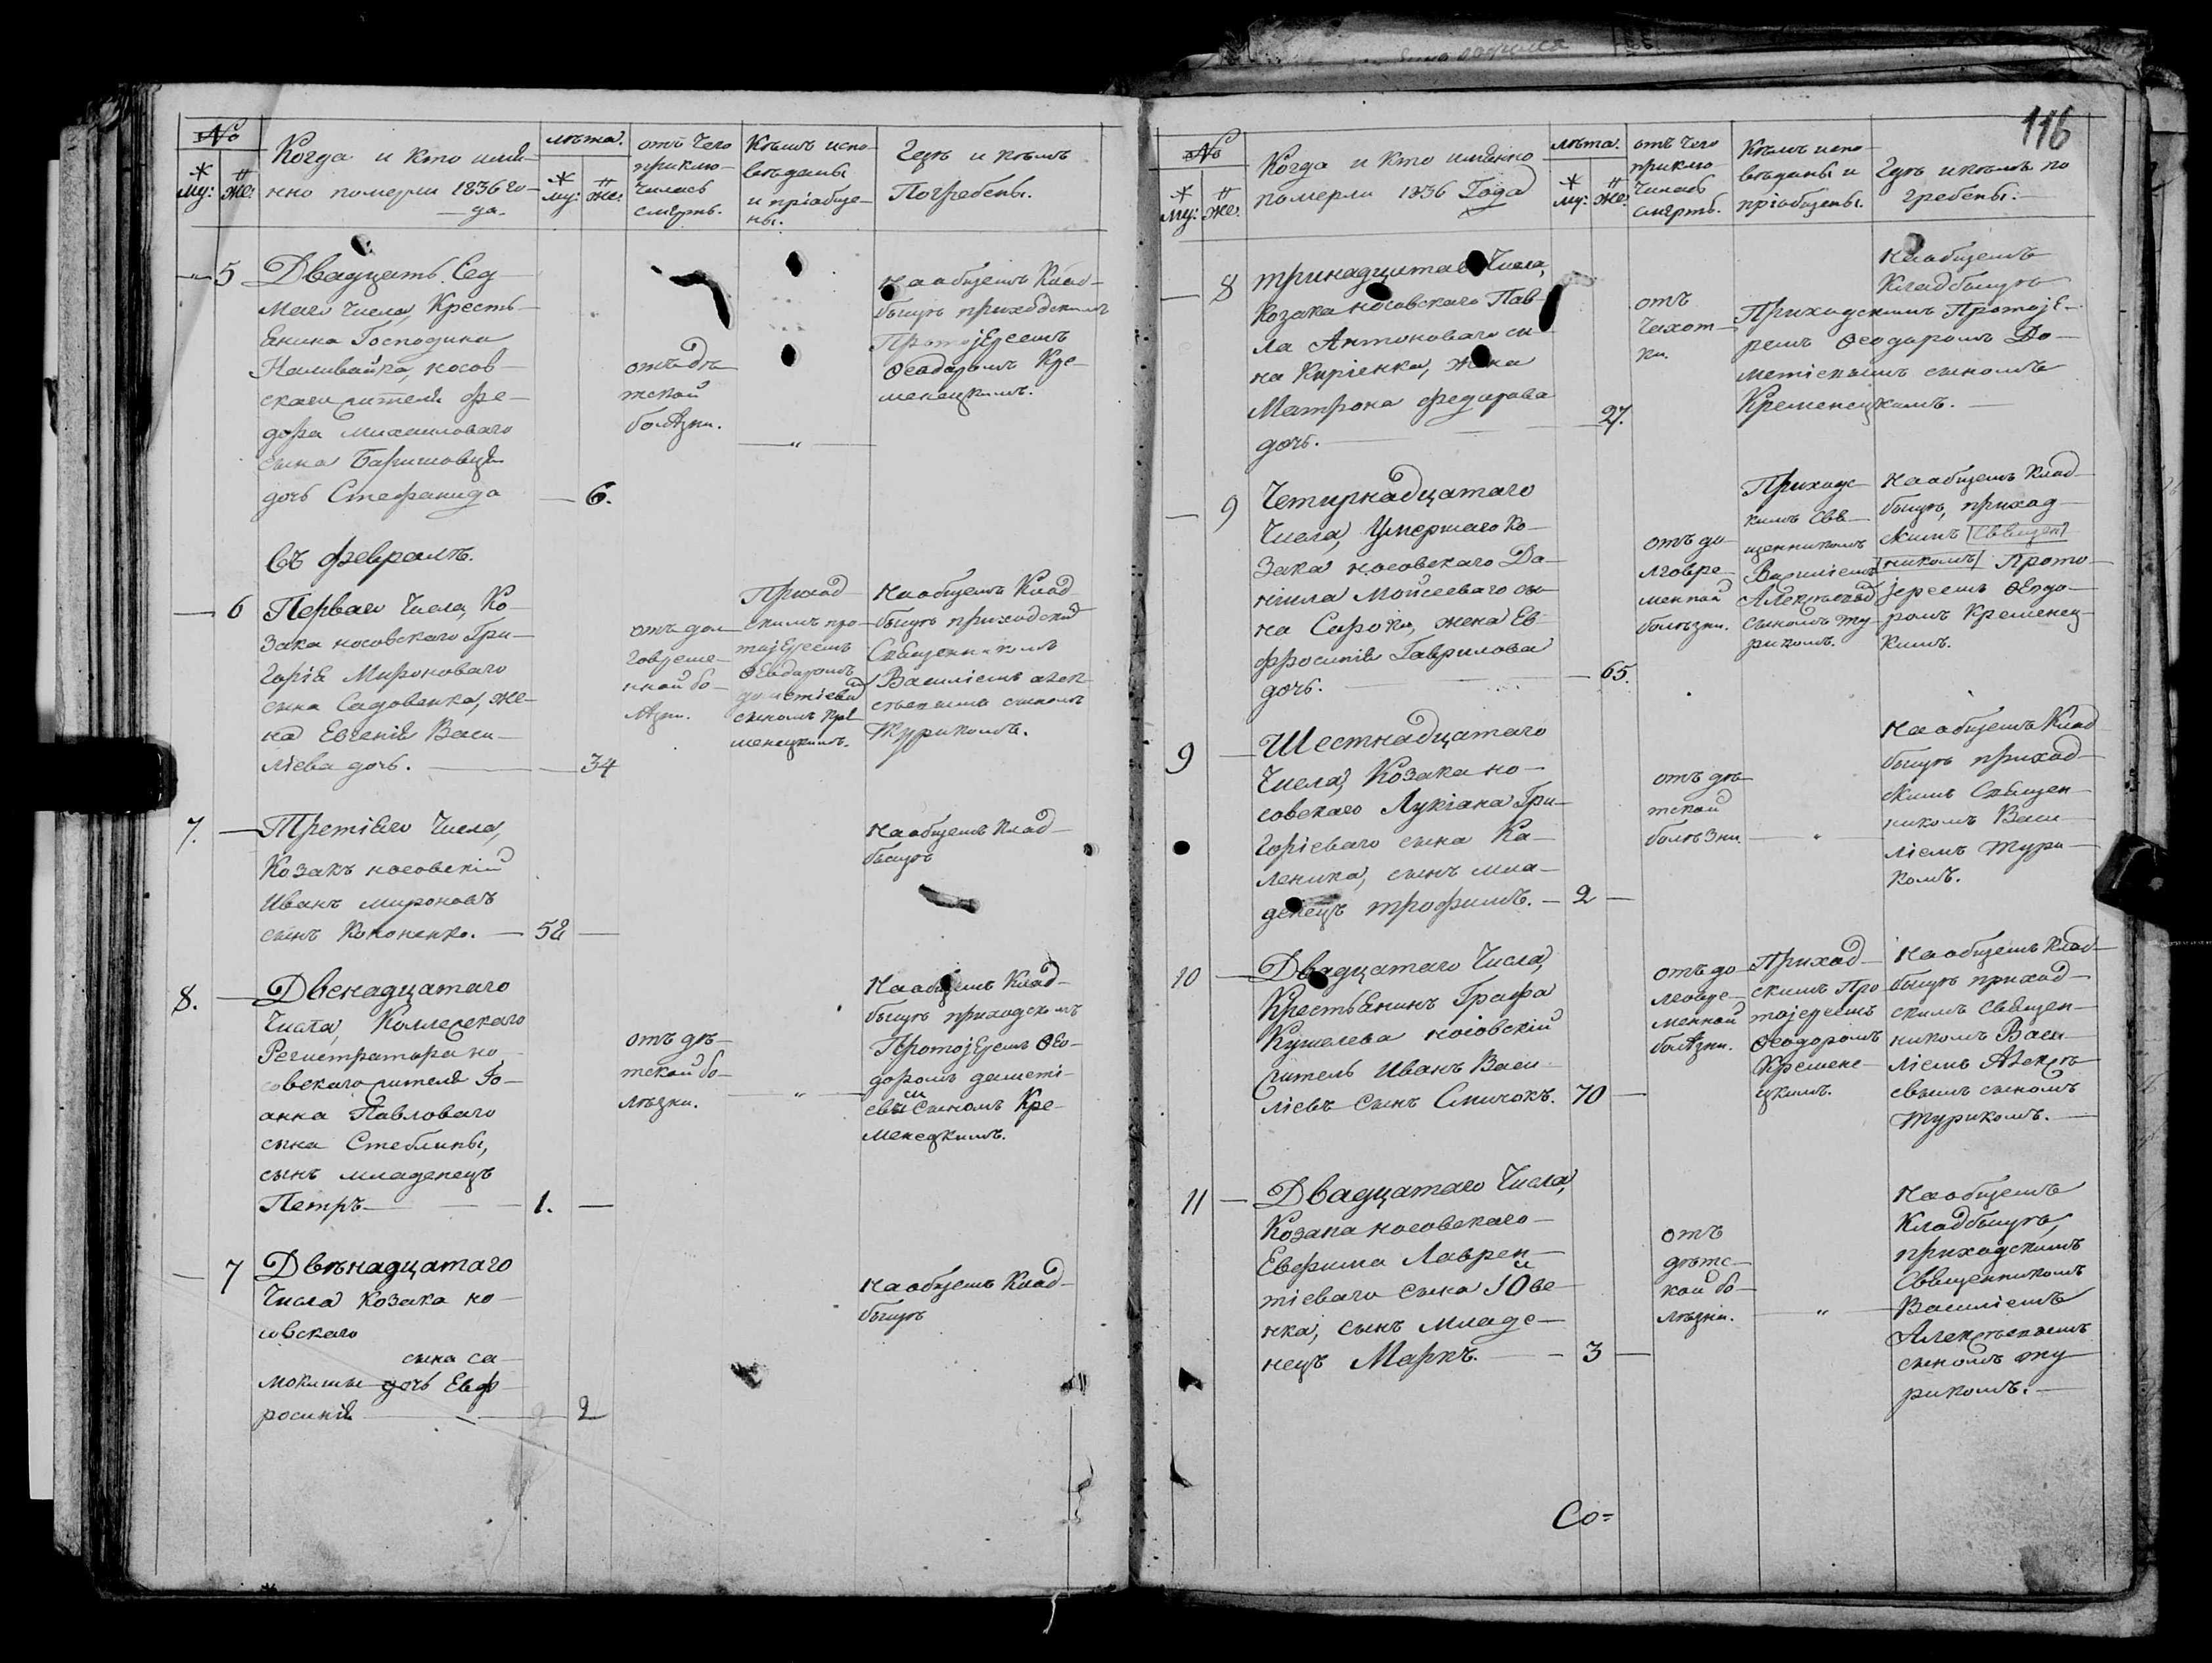 №
му: же:
Когда и кто имѧ-
нно померли 1836 го-
да.
лѣта.
му: же:
отъ чего
приклю-
чилась
смерть.
Кѣмъ испо-
вѣданы
и пріобще-
ны.
Гдѣ и кѣмъ
Погребены.
5
Двадцять Сед-
маго числа, Кресть-
ѧнина Господина
Наливайка, носов-
скаго жителѧ Фе-
дора Михаиловаго
сына
дочь Стефанида
6.
отъ дѣ-
тской
болѣзни.
на общемъ Клад-
бищѣ приходскимъ
Протоjереемъ
Ѳеодоромъ Кре-
менецкимъ.
Въ Февралѣ.
6
Перваго числа, Ко-
зака носовскаго Гри-
горіѧ Мироноваго
сына Садовенка, же-
на Евгеніѧ Васи-
ліева дочь.
34
отъ дол-
говреме-
нной бо-
лѣзни.
Приход-
скимъ про-
тоjереемъ
Ѳеодоромъ
дометіевим
сыномъ Кре-
менецкимъ.
на общемъ Клад-
бищѣ приходским
Священникомъ
Василіемъ алек-
сѣевымъ сыномъ
Турикомъ.
7.
Третіѧго числа,
Козакъ носовскій
Иванъ мироновъ
сынъ Кононенко.
58
на общемъ Клад-
бищѣ
8.
Двенадцатаго
числа, Коллежскаго
Регистратора но-
совскаго жителѧ Іо-
анна Павловаго
сына Стеблины,
сынъ младенецъ
Петръ
1.
отъ дѣ-
тской бо-
лѣзни.
На общемъ Клад-
бищѣ приходскимъ
Протоjереемъ Ѳео-
доромъ дометі-
евымъ сыномъ Кре-
менецкимъ.
7
Двѣнадцатаго
числа Козака но-
совскаго
сына са-
мокиши дочь Евф-
росиніѧ
2
на общемъ Клад-
бищѣ
116
№
му: же:
Когда и кто имѧнно
померли 1836 Года
лѣта.
му: же:
отъ чего
приклю-
чилась
смерть.
Кѣмъ испо-
вѣданы и
пріобщены.
Гдѣ и кѣмъ по
гребены.
8
тринадцатаго числа,
Козака носовскаго Пав-
ла Антоноваго сы-
на Киріенка, жена
Матрона федорова
дочь.
27.
отъ
чахот-
ки.
на общемъ
Кладбищѣ
Приходскимъ Протоjе-
реемъ Ѳеодоромъ До-
метіевымъ сыномъ
Кременецкимъ.
9
Четирнадцатаго
числа, Умершаго Ко-
зака носовскаго Да-
нила Мойсееваго сы-
на Сароки, жена Ев-
фросиніѧ Гаврилова
дочь.
65.
отъ до-
лговре-
менной
болѣзни.
Приходс-
кимъ Свѧ-
щенникомъ
Василіемъ
Алексѣевим
сыномъ Ту-
рикомъ.
на общемъ Клад-
бищѣ, приход-
скимъ Свѧщен
никомъ Прото-
jереемъ Ѳеодо-
ромъ Кременец-
кимъ.
9
Шестнадцатаго
числа, Козака но-
совскаго Лукіана Гри-
горіеваго сына Ка-
леника, сынъ мла-
денецъ трофимъ.
2
отъ дѣ-
тской
болѣзни.
на общемъ Клад-
бищѣ приход-
скимъ Свѧщен-
никомъ Васи-
ліемъ Тури-
комъ.
10
Двадцатаго числа,
Крестьѧнинъ Графа
Кушелева носовскій
житель Иванъ Васи-
ліевъ сынъ Сничокъ.
70
отъ до-
лговре-
менной
болѣзни.
Приход-
скимъ Про-
тоjереемъ
Ѳеодоромъ
Кремене-
цкимъ.
на общемъ Клад-
бищѣ приход-
скимъ свѧщен-
никомъ Васи-
ліемъ Алексѣ-
евымъ сыномъ
Турикомъ.
11
Двадцатаго числа,
Козака носовскаго
Евфима Лаврен-
тіеваго сына Юве-
нка, сынъ младе-
нецъ Маркъ.
3
отъ
дѣтс-
кой бо-
лѣзни.
на общемъ
Кладбищѣ,
приходскимъ
Свѧщенникомъ
Василіемъ
Алексѣевымъ
сыномъ ту-
рикомъ.
Со=